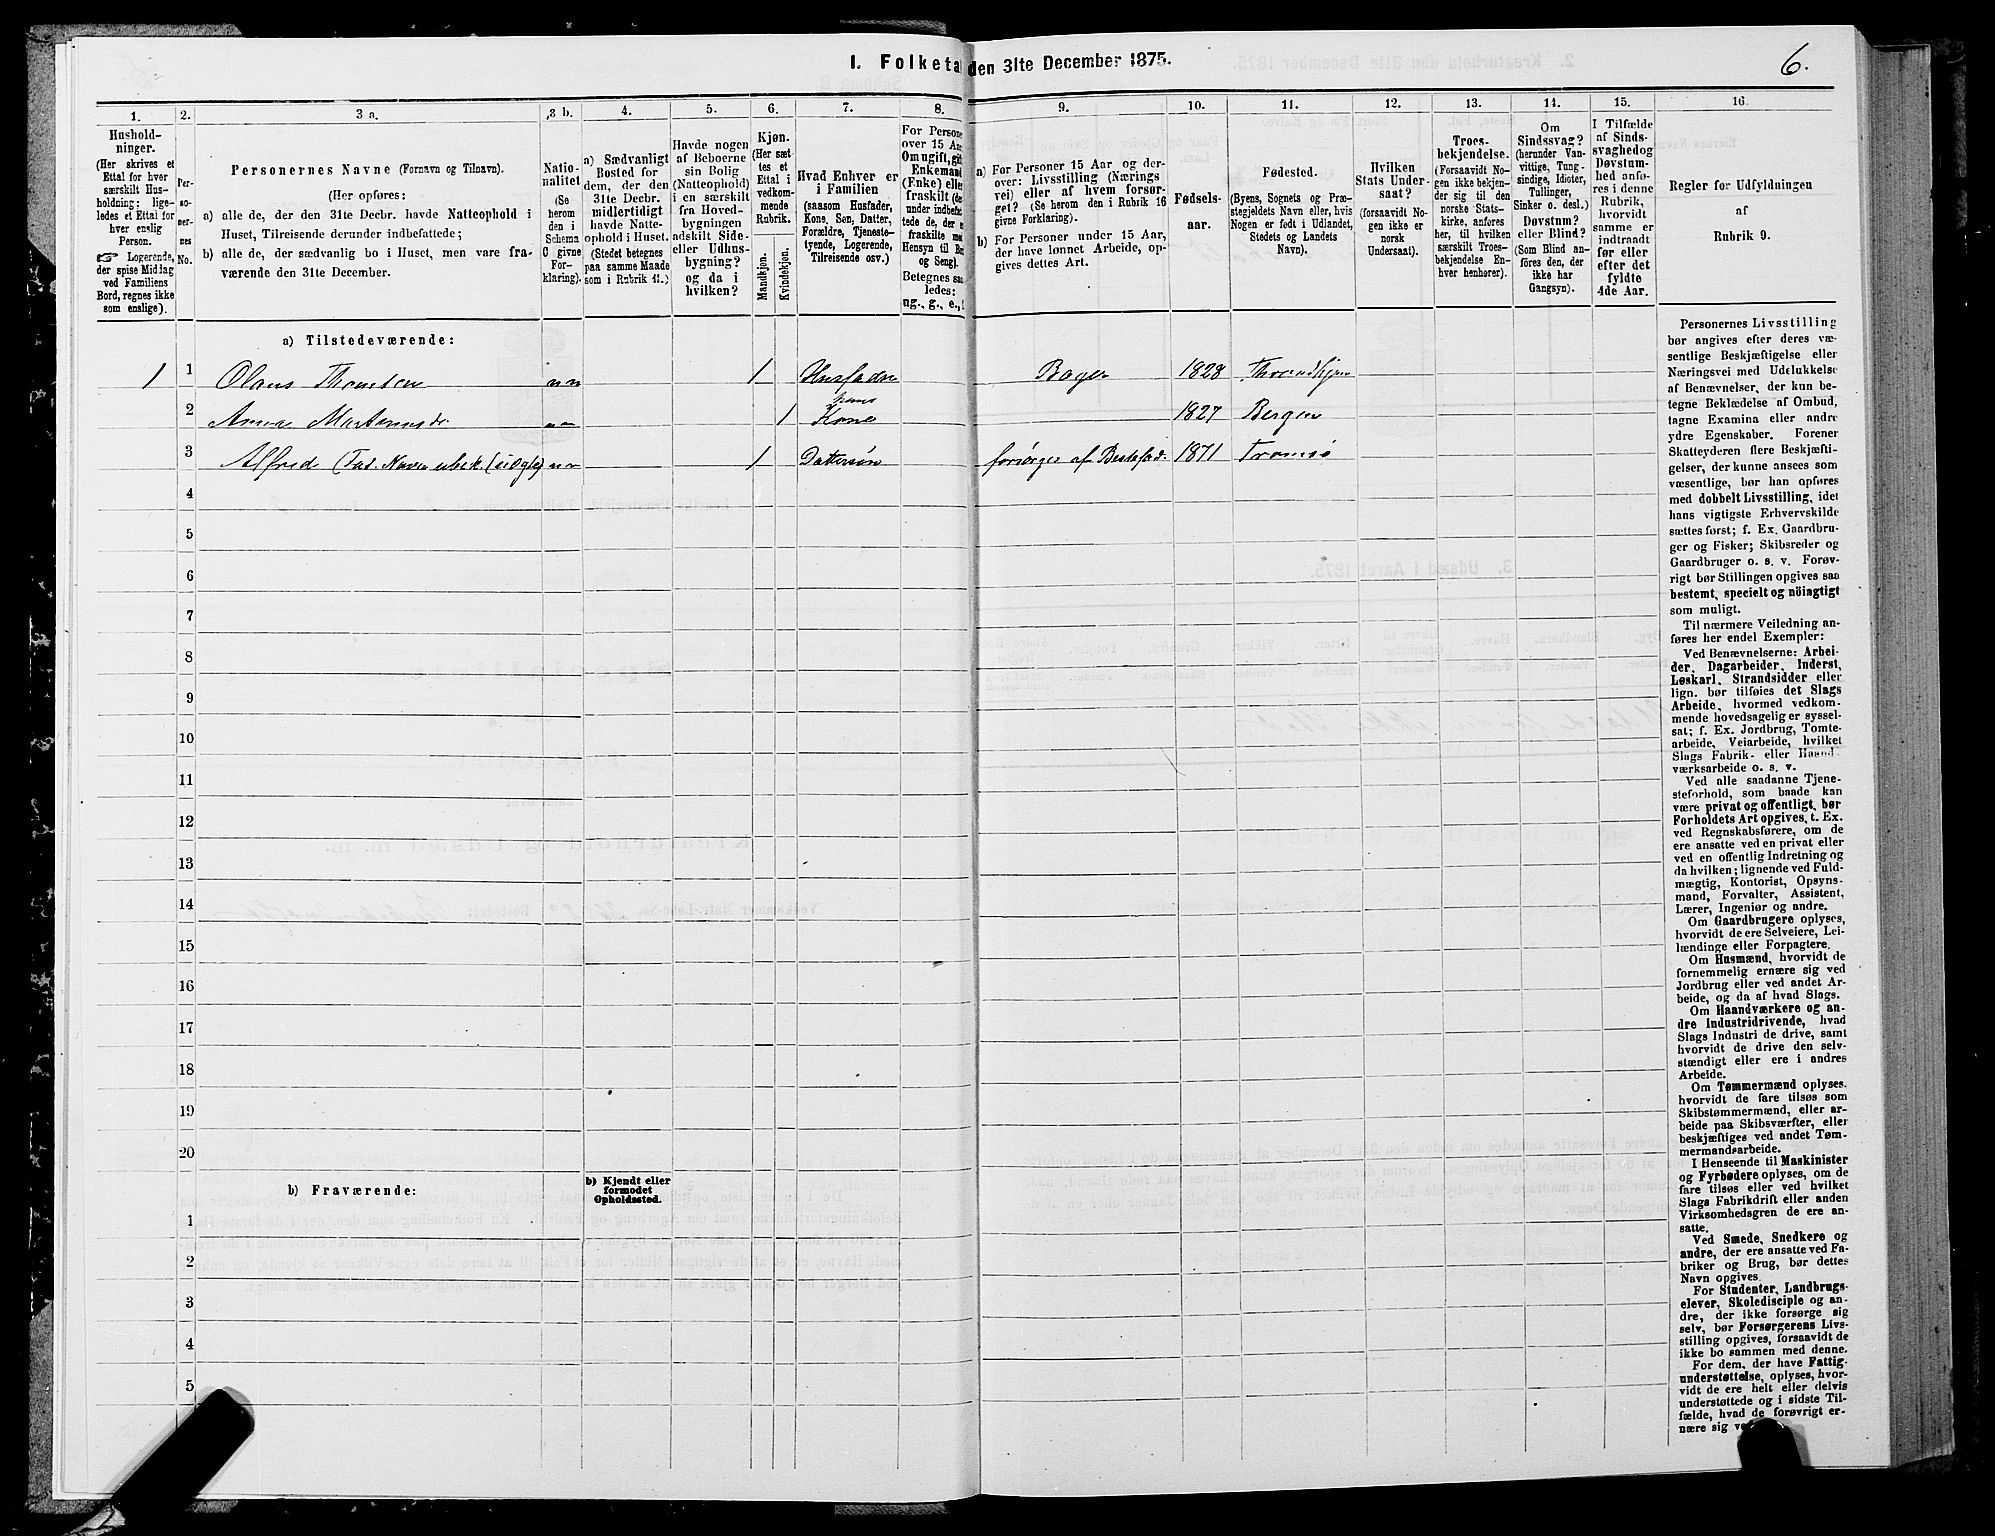 I. Folketa den 31te December 1875.
6.
1. 2. 3 a. 3 b. 4. 5. 6. 7. 8. 9. 10. 11. 12. 13. 14. 15. 16.
Hushold-
ninger.
(Her skrives et
Ettal for hver
særskilt Hus-
holdning; lige-
ledes et Ettal for
hver enslig
Person.
☞ Logerende,
der spise Middag
ved Familiens
Bord, regnes ikke
som enslige).
Per-
so-
ner-
nes
No.
Personernes Navne (Fornavn og Tilnavn).
(Her opføres:
a) alle de, der den 31te Decbr. havde Natteophold i
Huset, Tilreisende derunder indbefattede;
b) alle de, der sædvanlig bo i Huset, men vare fra-
værende den 31te December.
Natio-
nalitet
(Se
herom
den i
Schema
C givne
For-
klaring).
a) Sædvanligt
Bosted for
dem, der den
31te Decbr.
midlertidigt
havde Natte-
ophold i Huset.
(Stedet betegnes
paa samme Maade
som i Rubrik 11.)
Havde nogen
af Beboerne
sin Bolig
(Natteophold)
i en særskilt
fra Hoved-
bygningen
adskilt Side-
eller Udhus-
bygning?
og da i
hvilken?
Kjøn.
(Her sæt-
tes et
Ettal i
vedkom-
mende
Rubrik.
Mandkjøn.
Kvindekjøn.
Hvad Enhver er
i Familien
(saasom Husfader,
Kone, Søn, Datter,
Forældre, Tjeneste-
tyende, Logerende,
Tilreisende osv.)
For Persone
over 15 Aar
Om ugift, gift
Enkemand
(Enke) elle
fraskilt (de
under indbef
tede de, der e
fraskilte me
Hensyn til Bo
og Seng).
Betegnes saa
ledes:
ug., g., e., f
a) For Personer 15 Aar og der-
over: Livsstilling (Nærings
vei) eller af hvem forsør-
get? (Se herom den i Rubrik 16
givne Forklaring).
b) For Personer under 15 Aar,
der have lønnet Arbeide, op-
gives dettes Art.
Fødsels-
aar.
Fødested.
(Byens, Sognets og Præ-
stegjeldets Navn eller, hvis
Nogen er født i Udlandet,
Stedets og Landets
Navn).
Hvilken
Stats Under-
saat?
(forsaavidt No-
gen ikke er
norsk
Undersaat).
Troes-
bekjendelse.
(Forsaavidt No-
gen ikke bekjen-
der sig til den
norske Stats-
kirke, anføres
her, til hvilken
særskilt Troes-
bekjendelse En-
hver henhører).
Om
Sindssvag?
(herunder Van-
vittige, Tung-
sindige, Idioter,
Tullinger,
Sinker o. desl.)
Døvstum?
eller Blind?
(Som Blind an-
føres den, der
ikke har
Gangsyn).
I Tilfælde
af Sinds-
svaghed og
Døvstum-
hed anfø-
res i denne
Rubrik,
hvorvidt
samme er
indtraadt
før eller
efter det
fyldte
4de Aar.
Regler for Udfyldningen
af
Rubrik 9.
a) Tilstedeværende:
1 1 Olaus Thomsen nn 1 Husfader Bager 1828 Throndhjem
2 Anna Martinusdr. nn 1 hans Kone 1827 Bergen
3 Alfred nn 1 Dattersøn forsørges af Bestefad. 1871 Tromsø
4
5
6
7
8
9
10
11
12
13
14
15
16
17
18
19
20
b) Fraværende:
b) Kjendt eller
formodet
Opholdssted.
1
2
3
4
5
Personernes Livsstilling
bør angives efter deres væ-
sentlige Beskjæftigelse eller
Næringsvei med Udelukkelse
af Benævnelser, der kun be-
tegne Beklædelse af Ombud,
tagne Examina eller andre
ydre Egenskaber. Forener
Skatteyderen flere Beskjæfti-
gelser, der kunne ansees som
væsentlige, bør han opføres
med dobbelt Livsstilling, idet
hans vigtigste Erhvervskilde
sættes først; f. Ex. Gaardbru-
ger og Fisker; Skibsreder og
Gaardbruger o. s. v. Forøv-
rigt bør Stillingen opgives saa
bestemt, specielt og nöiagtigt
som muligt.
Til nærmere Veiledning an-
føres her endel Exempler:
Ved Benævnelserne: Arbei-
der, Dagarbeider, Inderst,
Løskarl, Strandsidder eller
lign. bør tilføies det Slags
Arbeide, hvormed vedkom-
mende hovedsagelig er syssel-
sat; f. Ex. Jordbrug, Tomte-
arbeide, Veiarbeide, hvilket
Slags Fabrik- eller Haand-
værksarbeide o. s. v.
Ved alle saadanne Tjene-
steforhold, som baade kan
være privat og offentligt, bør
Forholdets Art opgives, t. Ex.
ved Regnskabsførere, om de
ere ansatte ved en privat eller
ved en offentlig Indretning og
da hvilken; lignende ved Fuld-
mægtig, Kontorist, Opsyns-
mand, Forvalter, Assistent,
Lærer, Ingeniør og andre.
Om Gaardbrugere oplyses,
hvorvidt de ere Selveiere, Lei-
lændinge eller Forpagtere.
Om Husmænd, hvorvidt de
fornemmelig ernære sig ved
Jordbrug eller ved andet Ar-
beide, og da af hvad Slags.
Om Haandværkere og an-
dre Industridrivende, hvad
Slags Industri de drive, samt
hvorvidt de drive den selv-
stændigt eller ere i andres
Arbeide.
Om Tømmermænd oplyses,
hvorvidt de fare tilsøs som
Skibstømmermænd, eller ar-
beide paa Skibsværfter, eller
beskjæftiges ved andet Tøm-
mermandsarbeide.
I Henseende til Maskinister
og Fyrbødere oplyses, om de
fare tilsøs eller ved hvilket
Slags Fabrikdrift eller anden
Virksomhedsgren de ere an-
satte.
Ved Smede, Snedkere og
andre, der ere ansatte ved Fa-
briker og Brug, bør dettes
Navn opgives.
For Studenter, Landbrugs-
elever, Skoledisciple og an-
dre, der ikke forsørge sig
selv, bør Forsørgerens Livs-
stilling opgives, forsaavidt de
ikke bo sammen med denne.
For dem, der have Fattig-
understøttelse, oplyses, hvor-
vidt de ere helt eller delvis
understøttede og i sidste Til-
fælde, hvad de forøvrigt er-
nære sig ve